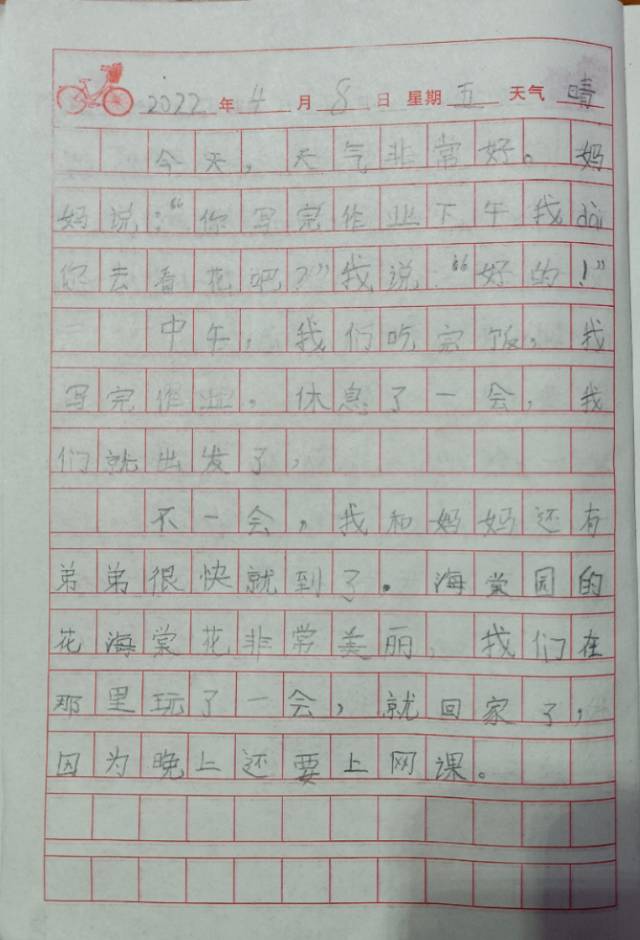 2022年4月8日 星期五 天气晴
今天，天气非常好。妈
妈说：“你写完作业下午我dài
你去看花吧？”我说：“好的！”
中午，我们吃完饭，我
写完作业，休息了一会，我
们就出发了，
不一会，我和妈妈还有
弟弟很快就到了。海棠园的
花海棠花非常美丽，我们在
那里玩了一会，就回家了，
因为晚上还要上网课。